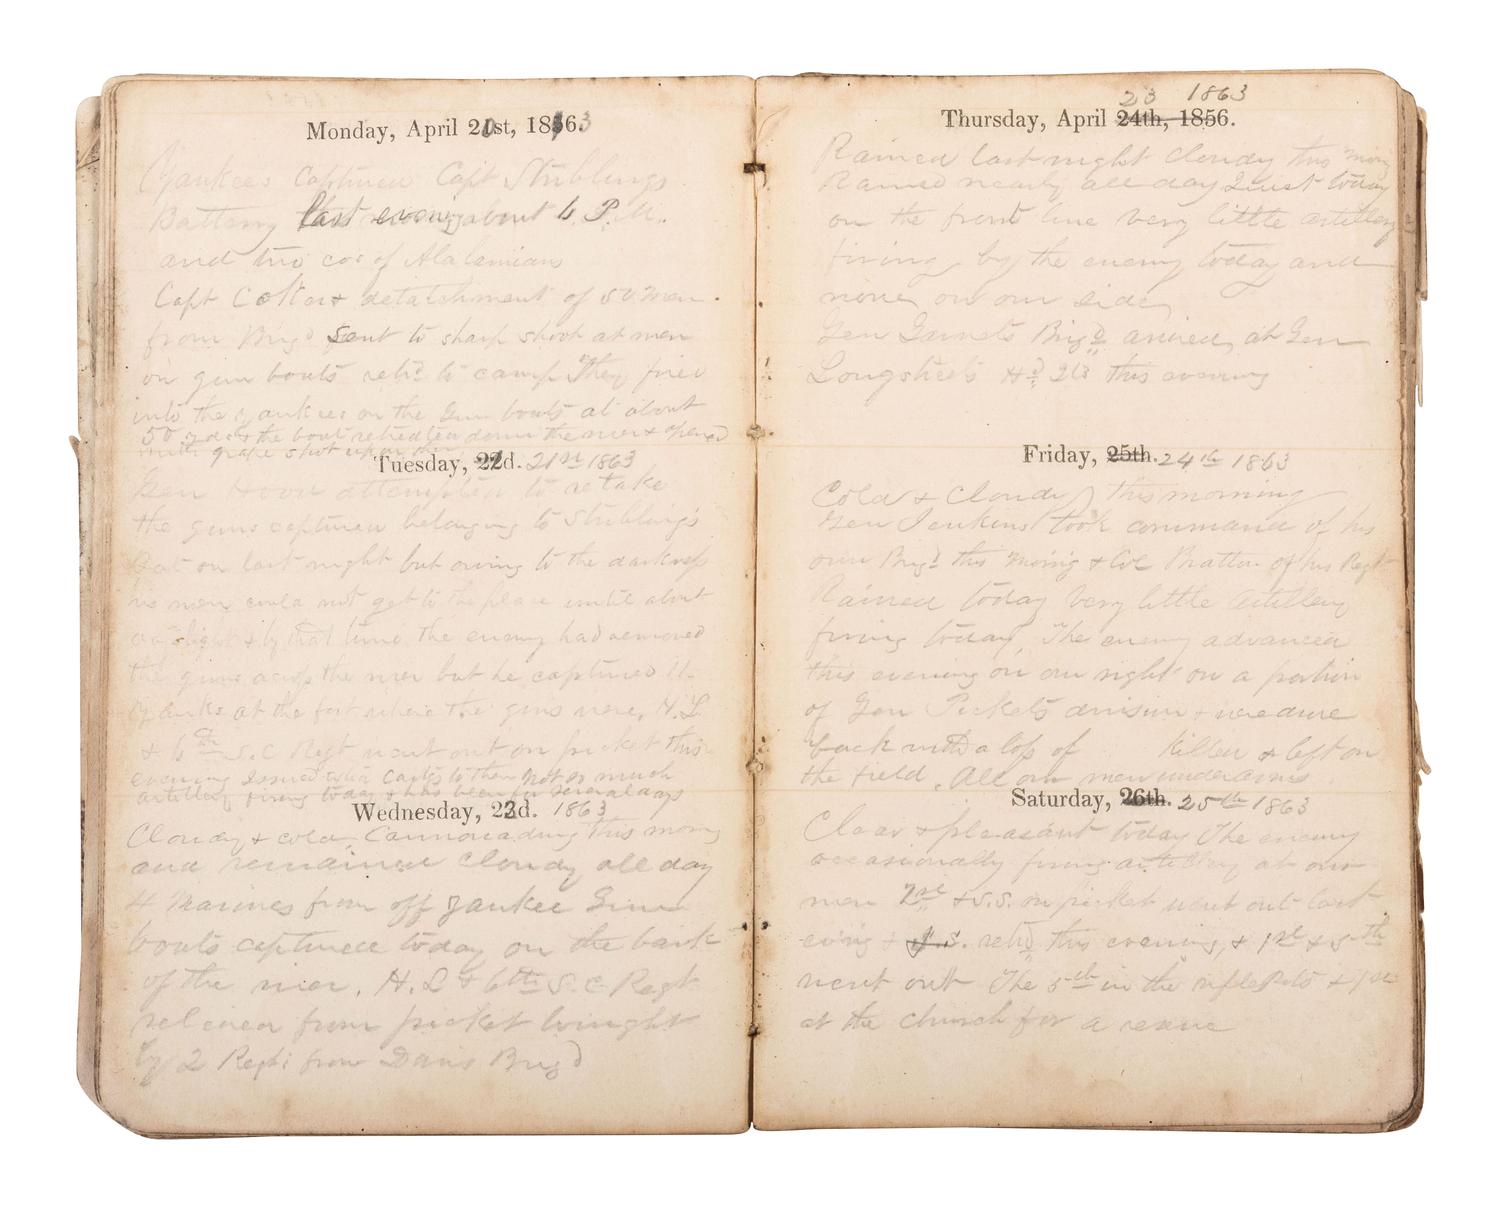 Monday, April 20st, 1863.
Yankees captured Capt Striblings
Battery last evening about 6 P.M.
and two cos of Alabamians
Capt detatchment of 50 men
from Brigd sent to sharp shoot at men
on gun boats retd to camp They fired
into the yankees on the Gun boats at about
50 yds & the boat retreated down the river & opened
with grape shot upon
Tuesday, 22d. 21st 1863
Gen Hood attempted to retake
the guns captured belonging to Striblings
Bat on last night but owing to the darkness
his men could not get to the place until about
daylight & by that time the enemy had removed
the guns across the river but he captured 11
yanks at the fort where the guns were. H.L.
& 6th S.C Regt went out on picket this
evening Issued extra cartgs to them Not so much
artillery firing today & has been for several days
Wednesday, 22d. 1863
Cloudy & cold, Cannonading this morng
and remained cloudy all day
4 Marines from off yankee Gun
boats captured today on the bank
of the river. H.L & 6th S.C Regt
releaved from picket tonight
by 2 Regts from Davis Brigd
Thursday, April 24th, 1856.
23 1863
Rained last night cloudy this morng
Rained nearly all day Quiet today
on the front line very little artillery
firing by the enemy today and
none on our side
Gen Garnets Brigd arrived at Gen
Longstreets Hd Qts this evening
Friday, 25th. 24th 1863
Cold & Cloudy this morning
Gen Jenkins took command of his
own Brigd this morng & Col Bratton of his Regt
Rained today very little artillery
firing today, The enemy advanced
this evening on our right on a portion
of Gen Pickets division & were drove
back with a loss of killed & left on
the field. All our men under arms
Saturday, 26th. 25th 1863
Clear & pleasant today The enemy
occasionally firing artillery at our
men 2nd & S.S. on picket went out last
evng & S.S. retd this evening, & 1st & 5th
went out The 5th in the rifle Pits & 1st
at the church for a reserve